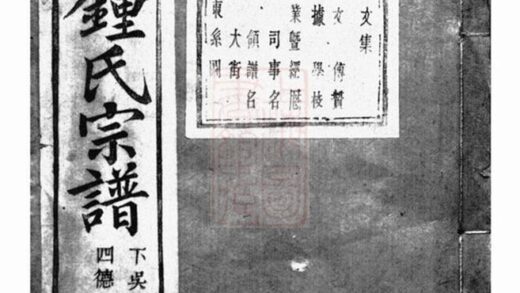 文集
文傳贊
據學校
業暨經歷
司事名
領譜名
大街
東系圖
鍾氏宗譜
下吳
四德